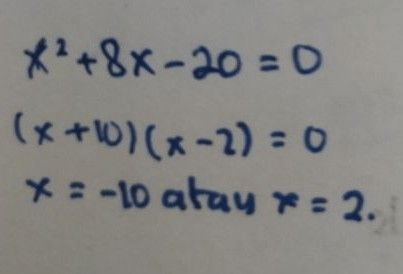 x² + 8x - 20 = 0
(x + 10)(x - 2) = 0
x = -10 atau x = 2.